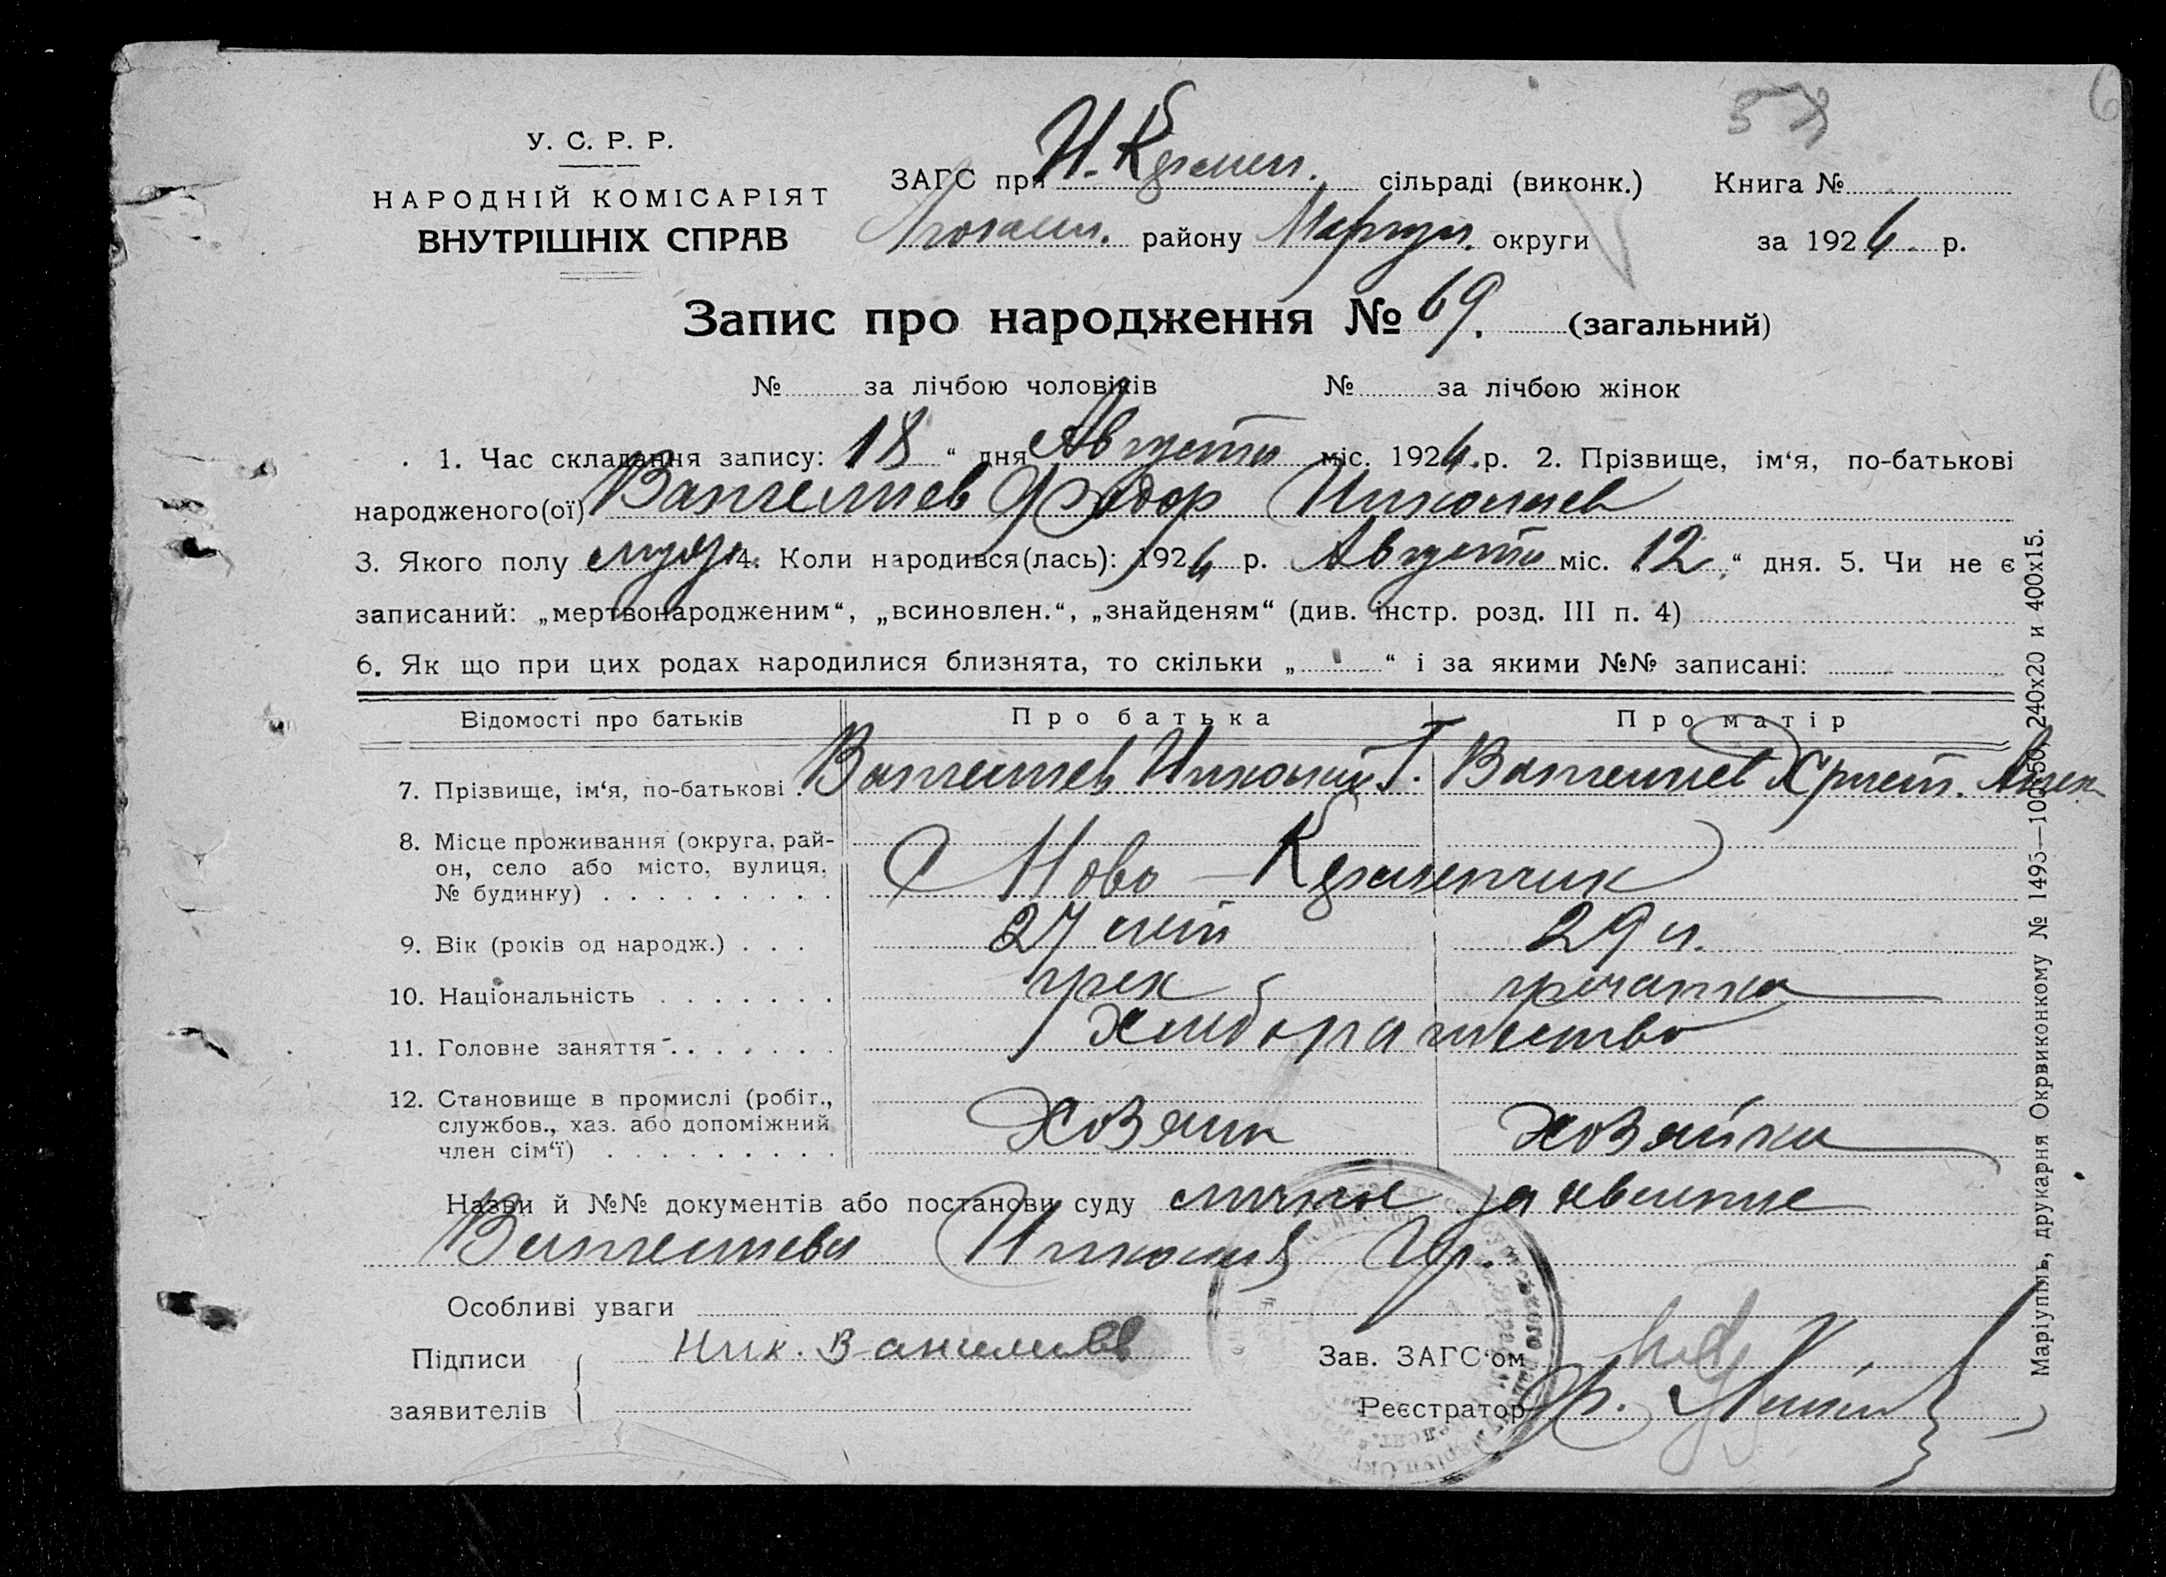 У. С. Р. Р.
НАРОДНІЙ КОМІСАРІЯТ
ВНУТРІШНІХ СПРАВ
ЗАГС при Н. Кремен. сільраді (виконк.) Книга №
району Мариуп. округи за 1926 р.
Запис про народження № 69. (загальний)
№ за лічбою чоловіків № за лічбою жінок
1. Час складання запису: 18 “ дня Августа міс. 1926 р. 2. Прізвище, ім‘я, по-батькові
народженого(ої) Вангелиев Федор Николаев
3. Якого полу муж. 4. Коли народився(лась): 1926 р. Августа міс. 12 “ дня. 5. Чи не є
записаний: „мертвонародженим“, „всиновлен.“, „знайденям“ (див. інстр. розд. III п. 4)
6. Як що при цих родах народилися близнята, то скільки „ “ і за якими №№ записані:
Відомості про батьків Про батька Про матір
7. Прізвище, ім‘я, по-батькові. Вангелиев Николай Г. Вангелиев Христ.
8. Місце проживання (округа, рай-
он, село або місто, вулиця,
№ будинку) С Ново-Кременчик
9. Вік (років од народж.) 27 лет 29 л.
10. Національність грек гречанка
11. Головне заняття Хлибопашество
12. Становище в промислі (робіт.,
службов., хаз. або допоміжний
член сім‘ї) Хозяин хозяйка
Назви й №№ документів або постанови суду личное заявление
Вангелиева Николай Гр.
Особливі уваги
Підписи Ник. Вангелиев Зав. ЗАГС‘ом
заявителів Реєстратор
Маріупіль, друкарня Окрвиконкому № 1493—100х50, 240х20 и 400х15.